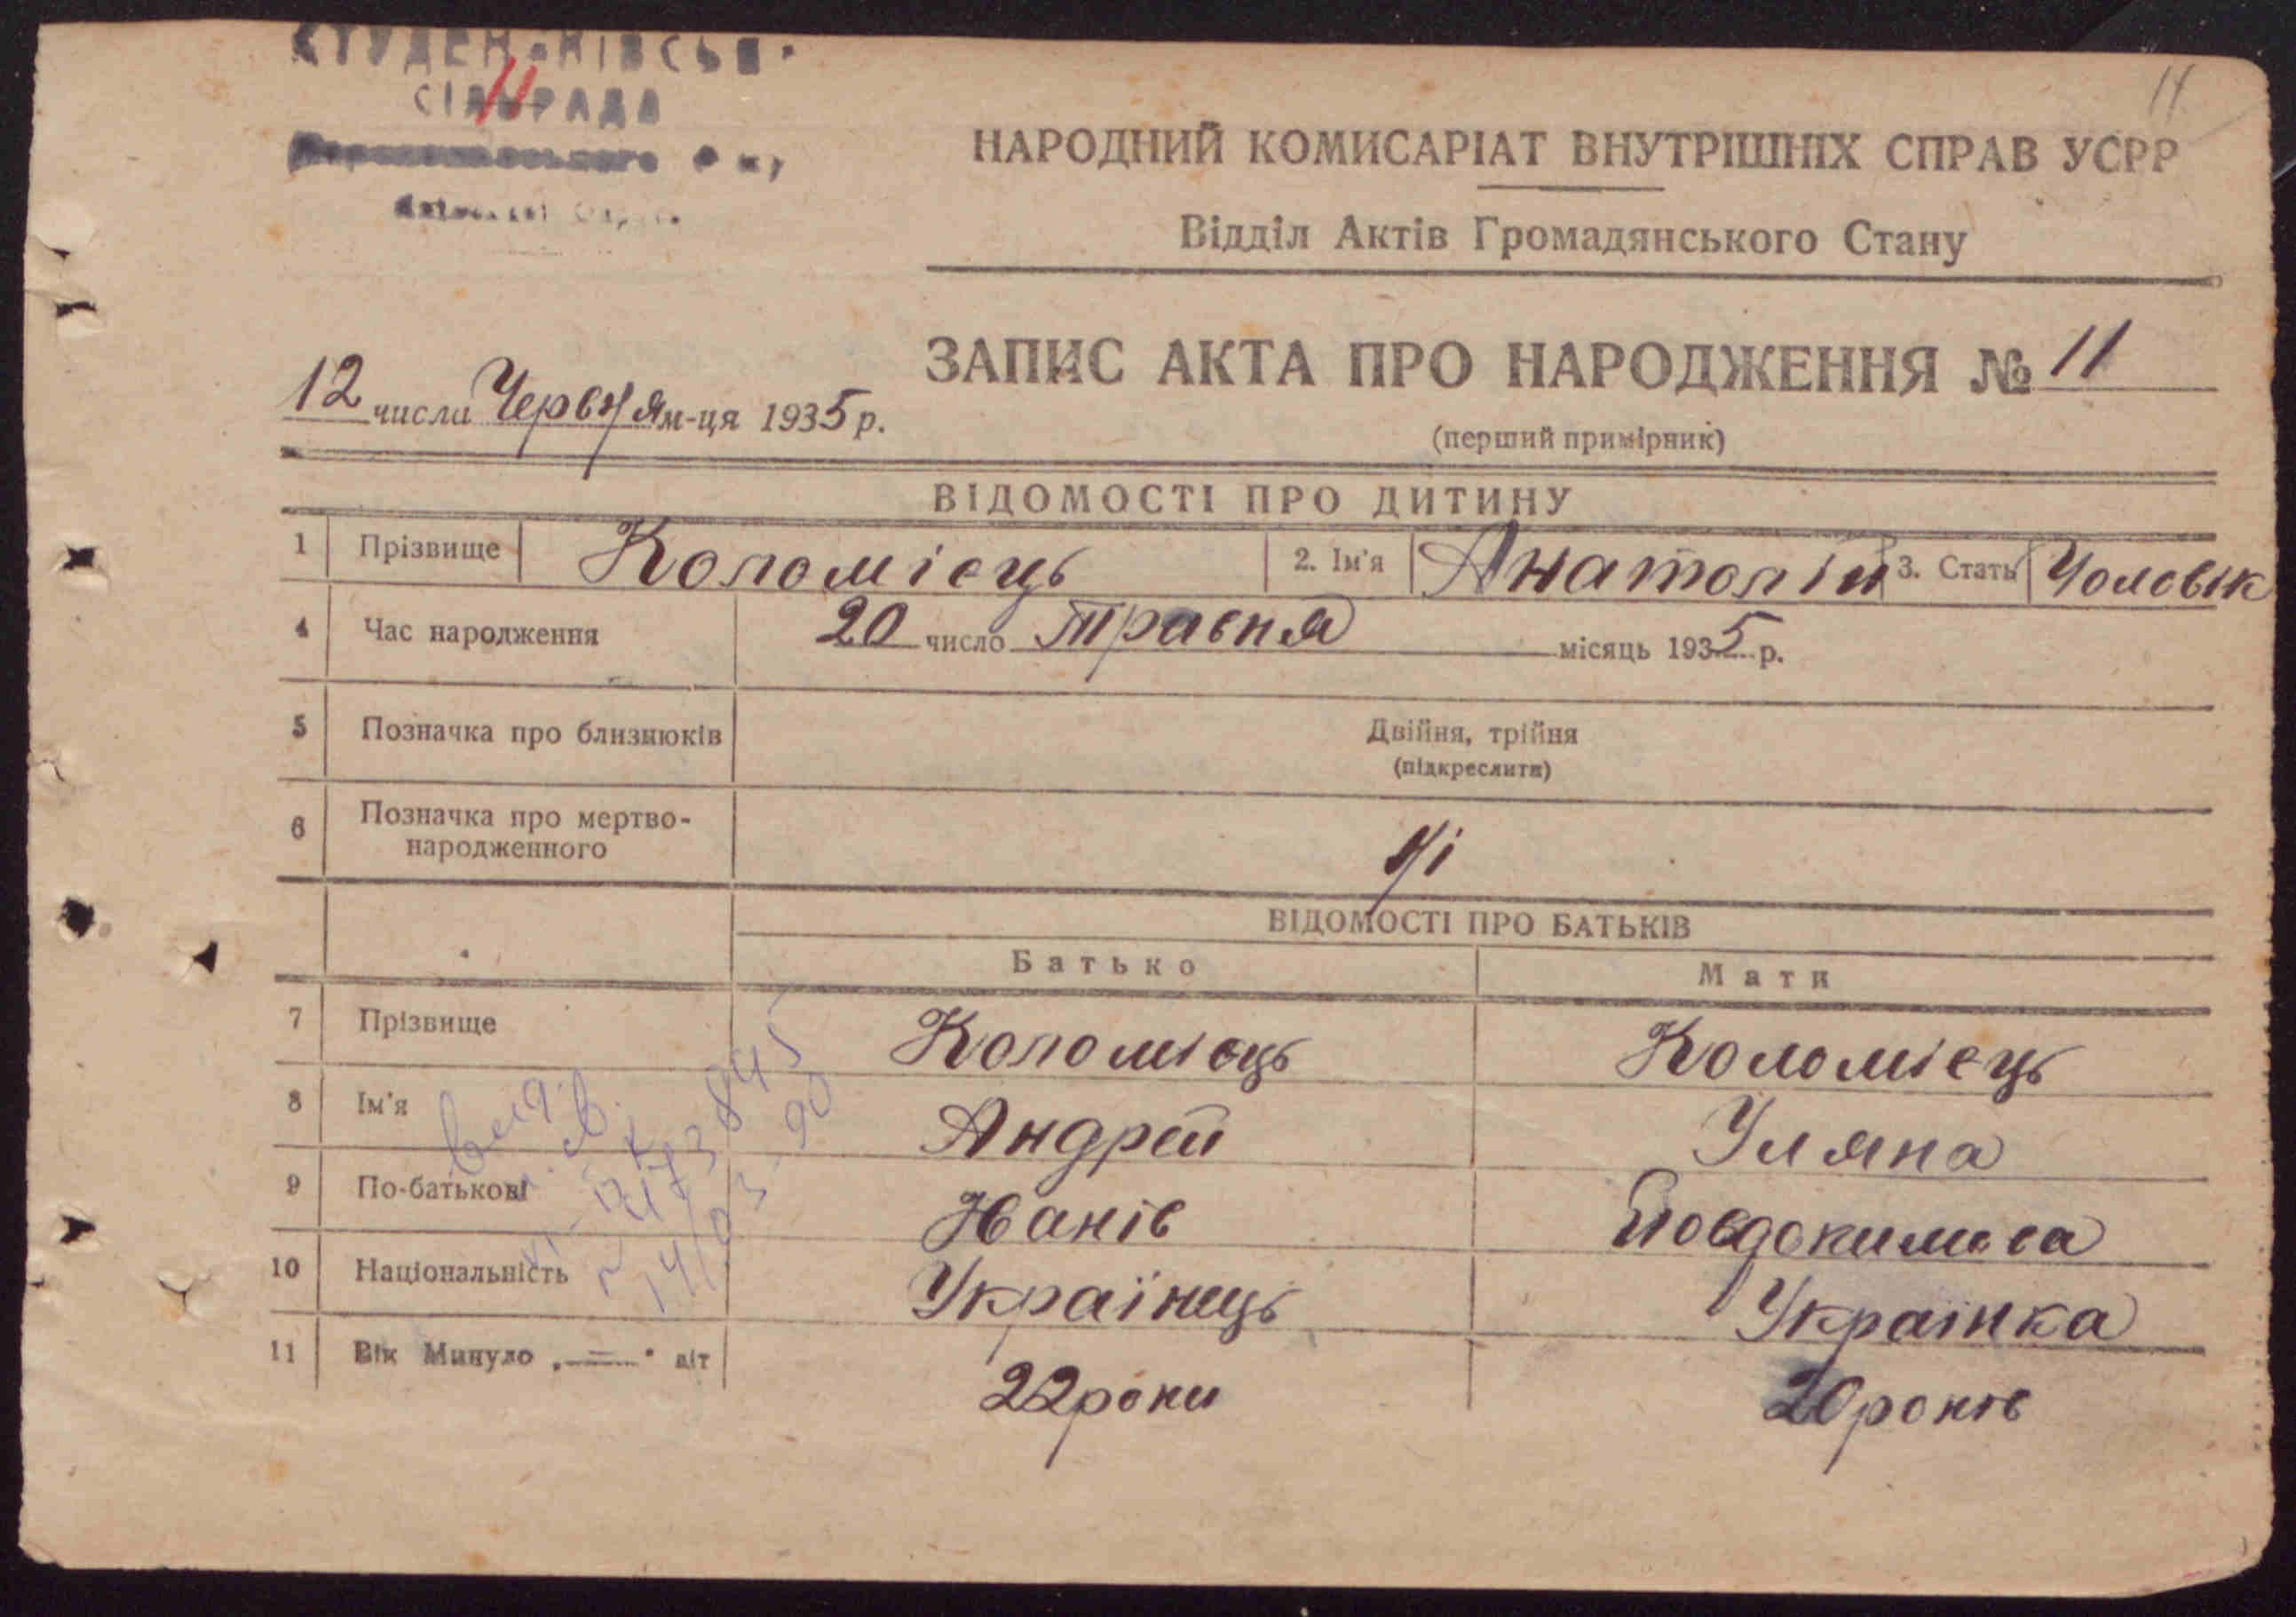 СІЛЬРАДА
11
11
НАРОДНИЙ КОМИСАРІАТ ВНУТРІШНІХ СПРАВ УСРР
Відділ Актів Громадянського Стану
ЗАПИС АКТА ПРО НАРОДЖЕННЯ № 11
12 числа Червня м-ця 1935 р.
(перший примірник)
ВІДОМОСТІ ПРО ДИТИНУ
1 Прізвище Коломієць 2. Ім'я Анатолій 3. Стать Чоловік
4 Час народження 20 число травня місяць 1935 р.
5 Позначка про близнюків Двійня, трійня
(підкреслити)
6 Позначка про мертво-
народженного ні
ВІДОМОСТІ ПРО БАТЬКІВ
Батько Мати
7 Прізвище Коломієць Коломієць
8 Ім'я Андрей Уляна
9 По-батькові Іванів Йовдокимова
10 Національність Українець Українка
11 Вік Минуло „—" літ 22 роки 20 років